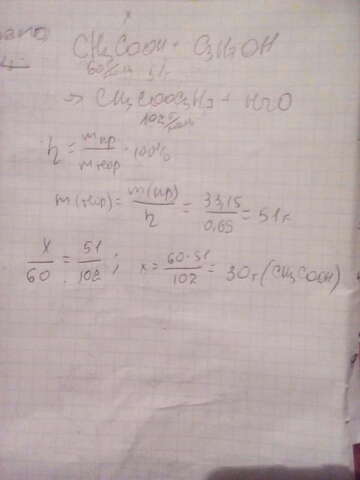 x
CH3COOH + C3H7OH
60 г/моль 51г
→ CH3COOC3H7 + H2O
102 г/моль
η = mпр / mтеор · 100%
m(теор) = m(пр) / η = 33,15 / 0,65 = 51г
x / 60 = 51 / 102 ; x = 60·51 / 102 = 30г (CH3COOH)